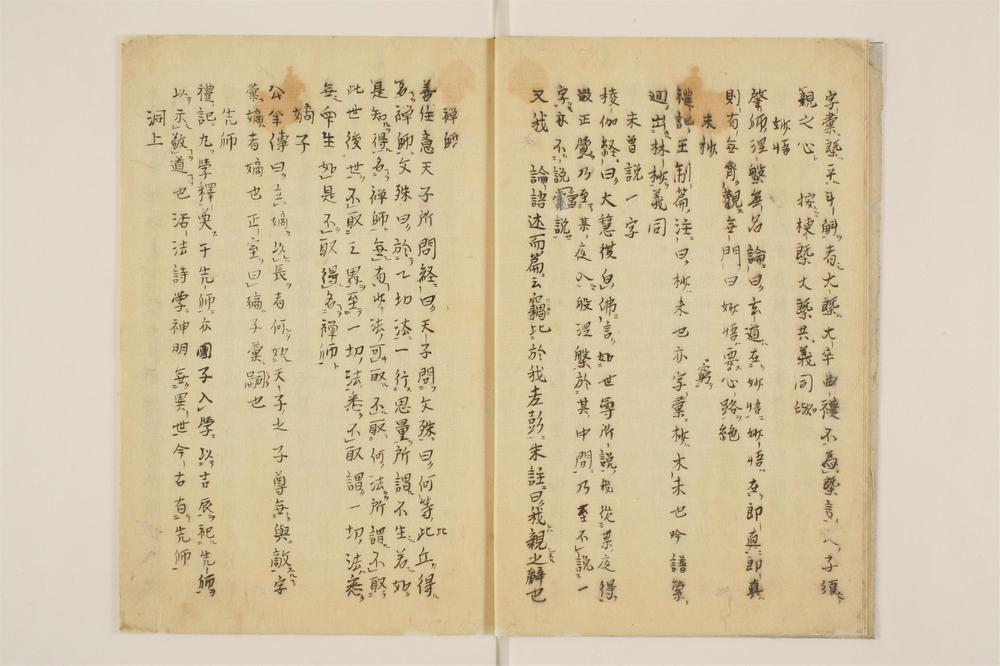 字彙槩平斗斛者大槩大率曲禮不爲槩言人子須
親之心 按棟槩大槩共義同
妙悟
肇師涅槃無名論曰玄道在妙悟妙悟在即真即真
則有無齊觀無門曰妙悟要窮心路絶
未抄
禮記王制篇注曰杪末也亦字彙杪木末也吟譜
出林杪義同
未曾説一字
棱伽経曰大慧復白佛言如世尊所説我從某夜得
最正覺乃至某夜入般涅槃於其中間乃至不説一
字亦不説當説
又我 論語述而篇云竊比於我老彭朱註曰我親之辭也
禅師
善住意天子所問経曰天子問文殊曰何等比丘得
名禅師文殊曰於一切法一行思量所謂不生若如
是知得名禅師無有少法可取不取何法所謂不取
此世後世不取三界至一切法悉不取謂一切法悉
無衆生如是不取得名禅師
嫡子
公羊傳曰立嫡以長者何如天子之子尊無與敵字
彙嫡者嫡也正室曰嫡子彙嗣也
先師
禮記九學釋奠于先師亦國子入學以吉辰祀先師
以示敬道也活法詩学神明無異世今古有先師
洞上